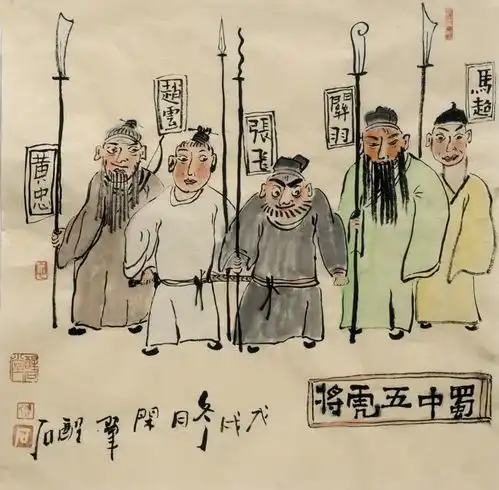 馬超
關羽
張飞
趙雲
黄忠
蜀中五虎将
戊戌冬月閑筆醒石